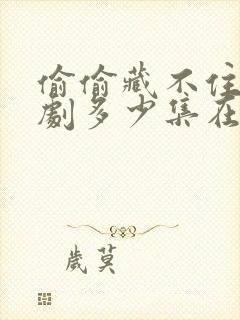 偷偷藏不住
劇多少集在
歲莫